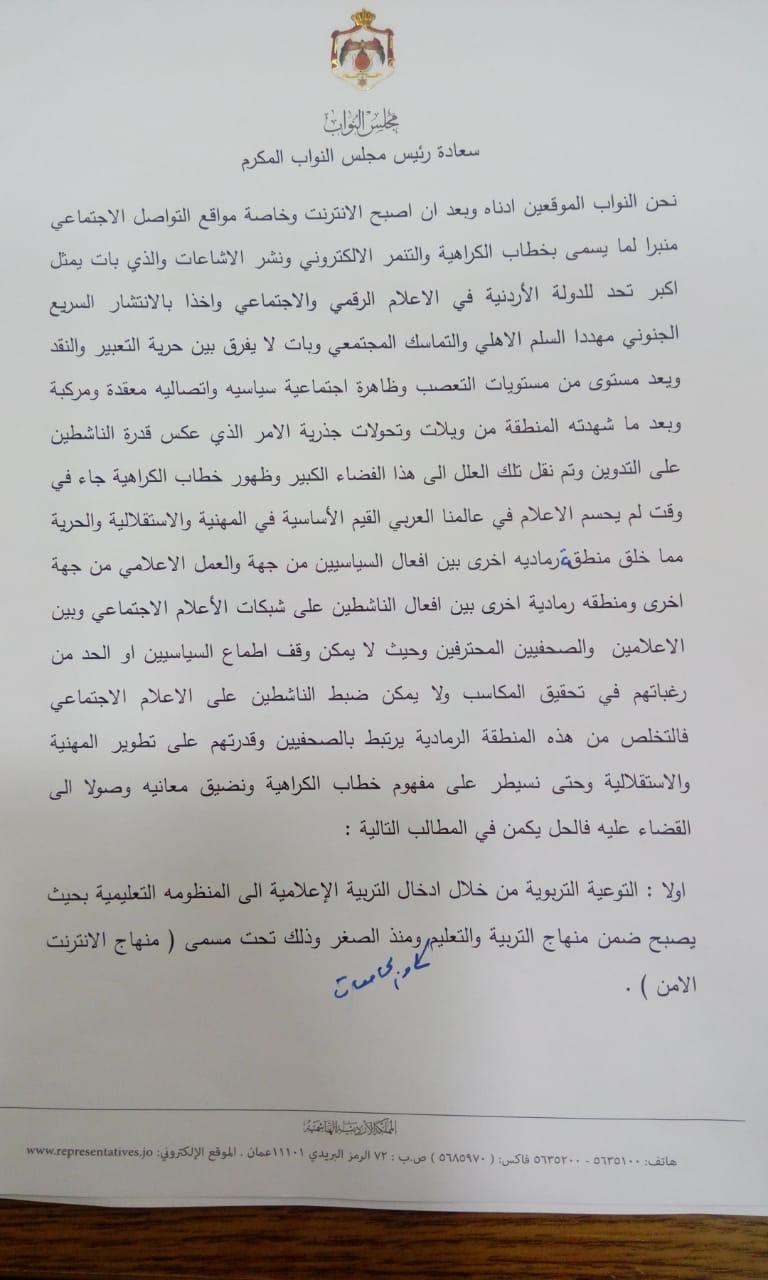 مجلس النواب
سعادة رئيس مجلس النواب المكرم
نحن النواب الموقعين ادناه وبعد ان اصبح الانترنت وخاصة مواقع التواصل الاجتماعي
منبرا لما يسمى بخطاب الكراهية والتنمر الالكتروني ونشر الاشاعات والذي بات يمثل
اكبر تحد للدولة الأردنية في الاعلام الرقمي والاجتماعي واخذا بالانتشار السريع
الجنوني مهددا السلم الاهلي والتماسك المجتمعي وبات لا يفرق بين حرية التعبير والنقد
ويعد مستوى من مستويات التعصب وظاهرة اجتماعية سياسيه واتصاليه معقدة ومركبة
وبعد ما شهدته المنطقة من ويلات وتحولات جذرية الامر الذي عكس قدرة الناشطين
على التدوين وتم نقل تلك العلل الى هذا الفضاء الكبير وظهور خطاب الكراهية جاء في
وقت لم يحسم الاعلام في عالمنا العربي القيم الأساسية في المهنية والاستقلالية والحرية
مما خلق منطقة رماديه اخرى بين افعال السياسيين من جهة والعمل الاعلامي من جهة
اخرى ومنطقه رمادية اخرى بين افعال الناشطين على شبكات الأعلام الاجتماعي وبين
الاعلامين والصحفيين المحترفين وحيث لا يمكن وقف اطماع السياسيين او الحد من
رغباتهم في تحقيق المكاسب ولا يمكن ضبط الناشطين على الاعلام الاجتماعي
فالتخلص من هذه المنطقة الرمادية يرتبط بالصحفيين وقدرتهم على تطوير المهنية
والاستقلالية وحتى نسيطر على مفهوم خطاب الكراهية ونضيق معانيه وصولا الى
القضاء عليه فالحل يكمن في المطالب التالية :
اولا : التوعية التربوية من خلال ادخال التربية الإعلامية الى المنظومه التعليمية بحيث
يصبح ضمن منهاج التربية والتعليم ومنذ الصغر وذلك تحت مسمى ( منهاج الانترنت
الامن ) .
المملكة الأردنية الهاشمية
هاتف: ٥٦٣٥١٠٠ - ٥٦٣٥٢٠٠ فاكس: ( ٥٦٨٥٩٧٠ ) ص.ب : ٧٢ الرمز البريدي ١١١٠١عمان . الموقع الإلكتروني: www.representatives.jo